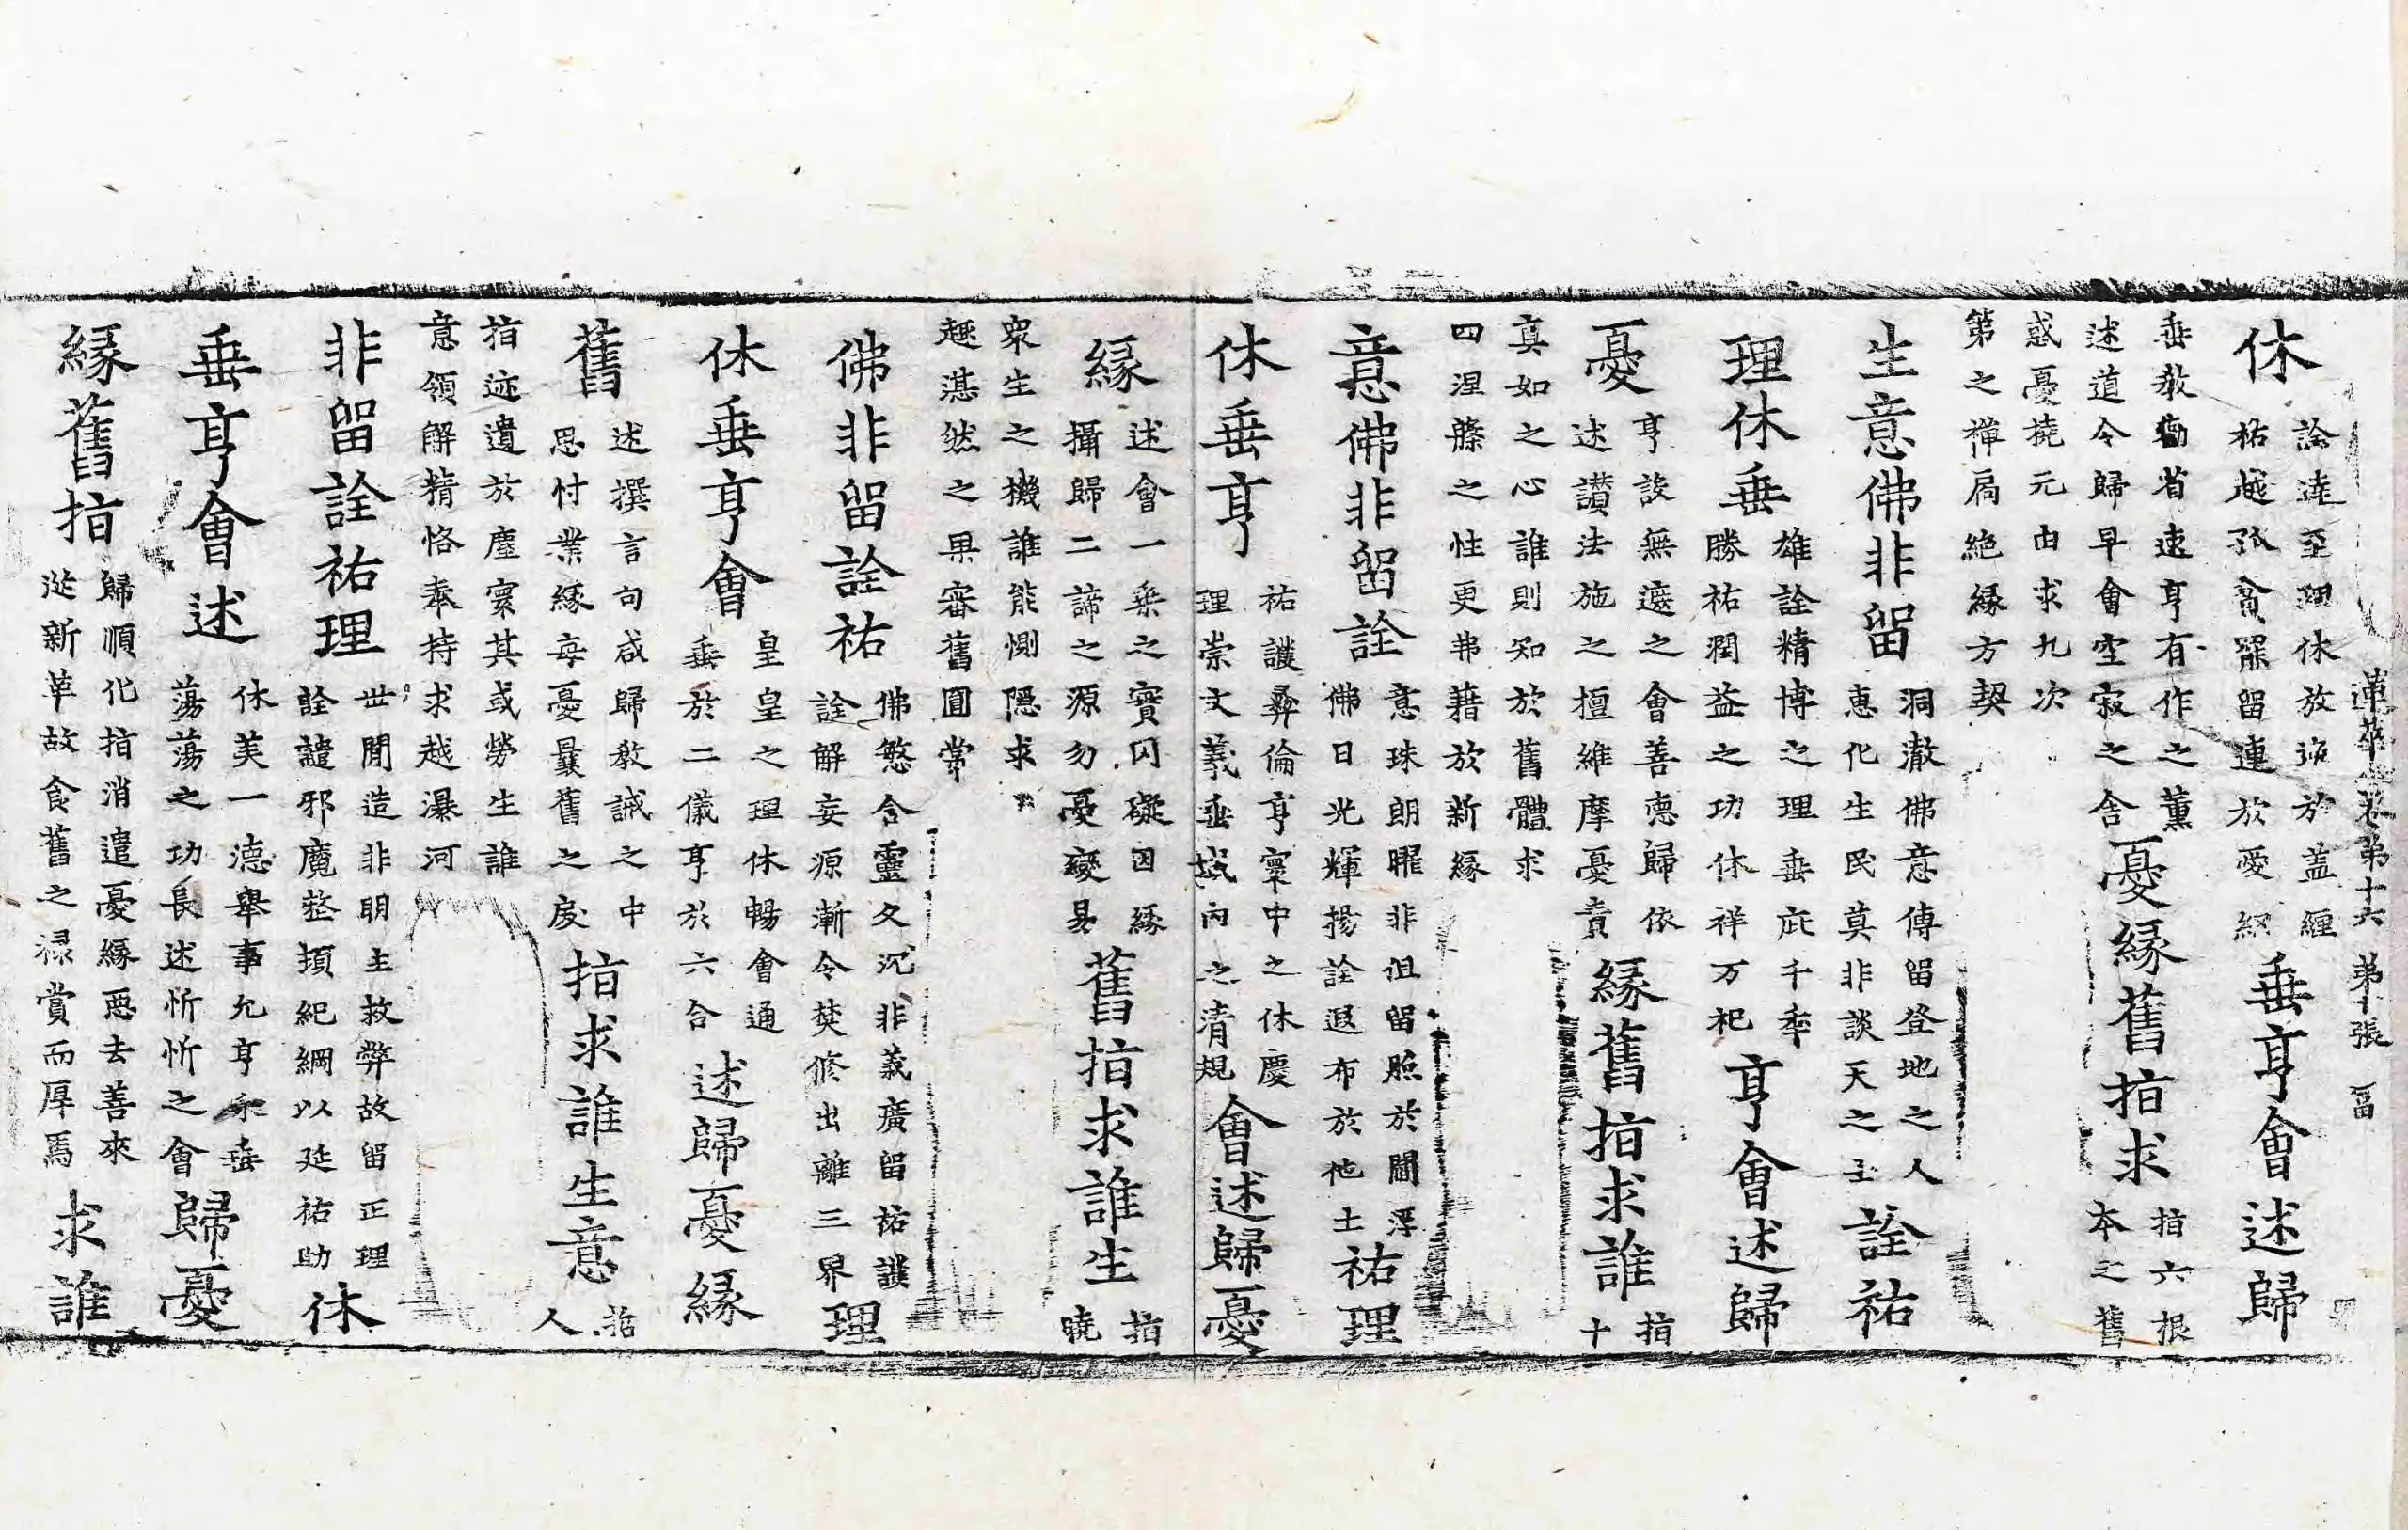 蓮華心第十六 第十張 畐
休
詮達至理休放逸於蓋纏
祐越孤貧罷留連於愛網
垂亨會述歸
垂教勸省速亨有作之薰
述道令歸早會空寂之舍
憂緣舊指求
指六根
本之舊
惑憂撓元由求九次
第之禪扃絶緣方契
生意佛非留
洞澈佛意傳留登地之人
惠化生民莫非談天之士
詮祐
理休垂
雄詮精博之理垂庇千秊
勝祐潤益之功休祥万祀
亨會述歸
憂
亨設無遮之會善德歸依
述讚法施之檀維摩憂責
緣舊指求誰
指
十
真如之心誰則知於舊體求
四涅槃之性更弗藉於新緣
意佛非留詮
意珠朗曜非但留照於閻浮
佛日光輝揚詮遐布於他土
祐理
休垂亨
祐護彝倫亨寰中之休慶
理崇文義垂域内之清規
會述歸憂
緣
述會一乘之實因礙因緣
攝歸二諦之源勿憂變易
舊指求誰生
指
曉
衆生之機誰能惻隱求
趣湛然之果審舊圓常
佛非留詮祐
佛慜含靈久沉非義廣留祐護
詮解妄源漸令焚修出離三界
理
休垂亨會
皇皇之理休暢會通
垂於二儀亨於六合
述歸憂緣
舊
述撰言句咸歸教誡之中
思忖業緣每憂曩舊之戾
指求誰生意
指
人
指迹遺於塵寰其或勞生誰
意領解精恪奉持求越瀑河
非留詮祐理
世間造非明主救弊故留正理
詮譴邪魔整頓紀綱以延祐助
休
垂亨會述
休美一德舉事允亨永垂
蕩蕩之功長述忻忻之會
歸憂
緣舊指
歸順化指消遣憂緣惡去善來
從新革故食舊之祿賞而厚焉
求誰